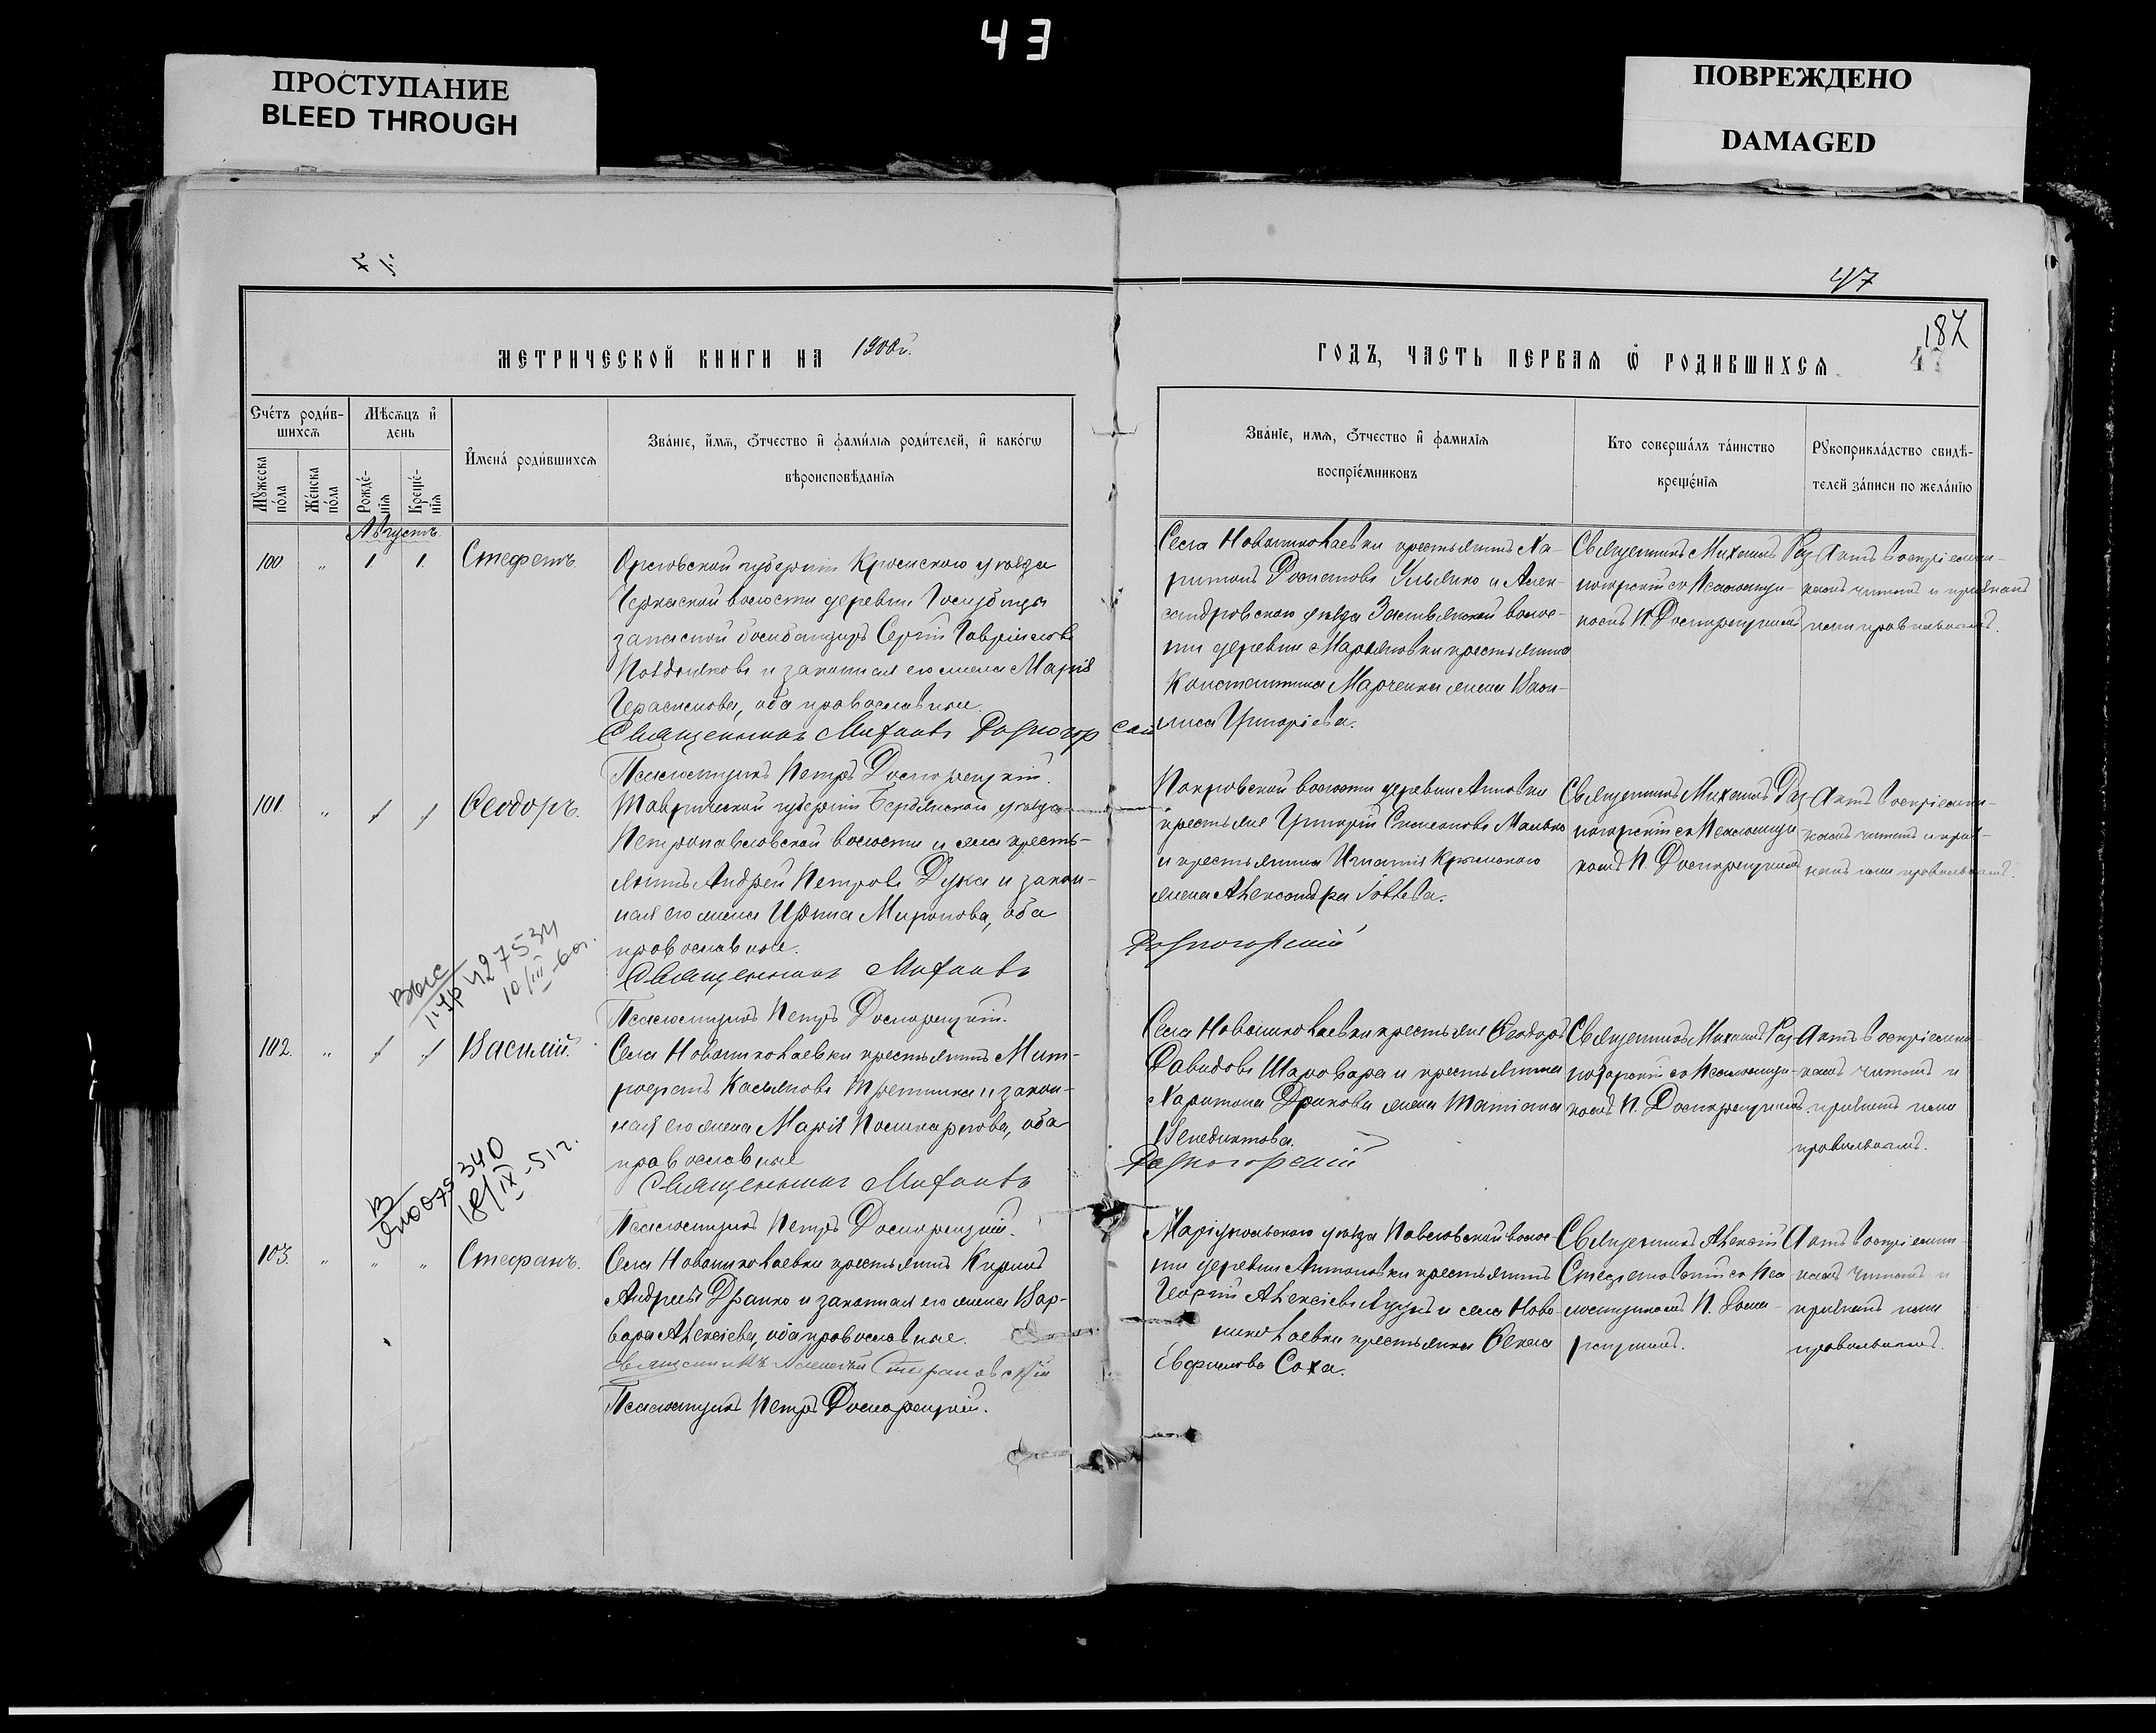 43
ПРОСТУПАНИЕ
BLEED THROUGH
ПОВРЕЖДЕНО
DAMAGED
47
187
47
МЕТРИЧЕСКОЙ КНИГИ НА 1900 г.
ГОДЪ, ЧАСТЬ ПЕРВАЯ Ѡ РОДИВШИХСЯ
Счетъ родив-
шихся
Мѣсяцъ и
день
Мужеска
пола
Женска
пола
Рожде-
нія
Креще-
нія
Имена родившихся
Званіе, имя, отчество и фамилія родителей, и какогѡ
вѣроисповѣданія
Званіе, имя, отчество и фамилія
воспріемниковъ
Кто совершалъ таинство
крещенія
Рукоприкладство свидѣ-
телей записи по желанію
Августъ
100 " 1 1 Стефанъ
Орловской губерніи Кромскаго уѣзда
волости деревни Голубицы
запасной бомбардиръ Сергій Гавріиловъ
и законная его жена Марія
Герасимова, оба православные.
Священникъ Михаилъ Разногорскій
Псаломщикъ Петръ
Села Новониколаевки крестьянинъ Ха-
ритонъ Ульянко и Алек-
сандровскаго уѣзда волос-
ти деревни Марьяновки крестьянина
Константина Марченка жена Васи-
лиса Григоріева.
Священникъ Михаилъ Раз-
ногорскій съ Псаломщи-
комъ П.
Актъ воспріемни-
камъ читанъ и признанъ
ими правильнымъ.
101. " 1 1 Ѳеодоръ.
Таврической губерніи Бердянскаго уѣзда
Петропавловской волости и села кресть-
янинъ Андрей Петровъ Дука и закон-
ная его жена Ирина Миронова, оба
православные.
Священникъ Михаилъ
Разногорскій
Псаломщикъ Петръ
Покровской волости деревни Анновки
крестьяне Григорій Симеоновъ Малько
и крестьянина Игнатія Крымскаго
жена Александра
Священникъ Михаилъ Раз-
ногорскій съ Псаломщи-
комъ П.
Актъ воспріемни-
камъ читанъ и приз-
нанъ ими правильнымъ.
10/III-60г.
102. " 1 1 Василій.
Села Новониколаевки крестьянинъ Мит-
рофанъ Касьяновъ Третяка и закон-
ная его жена Марія Поликарпова, оба
православные
Священникъ Михаилъ
Разногорскій
Псаломщикъ Петръ
Села Новониколаевки крестьяне Ѳеодоръ
Давидовъ Шаровара и крестьянина
Харитона Дрикова жена Татіана
Венедиктова.
Священникъ Михаилъ Раз-
ногорскій съ Псаломщи-
комъ П.
Актъ воспріемни-
камъ читанъ и
признанъ ими
правильнымъ.
18/IX-51г.
103. " " " Стефанъ.
Села Новониколаевки крестьянинъ Кирилъ
Андреевъ и законная его жена Вар-
вара Алексіева, оба православные.
Священникъ Алексій Стефановскій
Псаломщикъ Петръ
Маріупольскаго уѣзда Павловской волос-
ти деревни Антоновки крестьянинъ
Георгій Алексіевъ и села Ново-
николаевки крестьянка Ѳекла
Евфимова Соха.
Священникъ Алексій
Стефановскій съ Пса-
ломщикомъ П.
Актъ воспріемни-
камъ читанъ и
признанъ ими
правильнымъ.